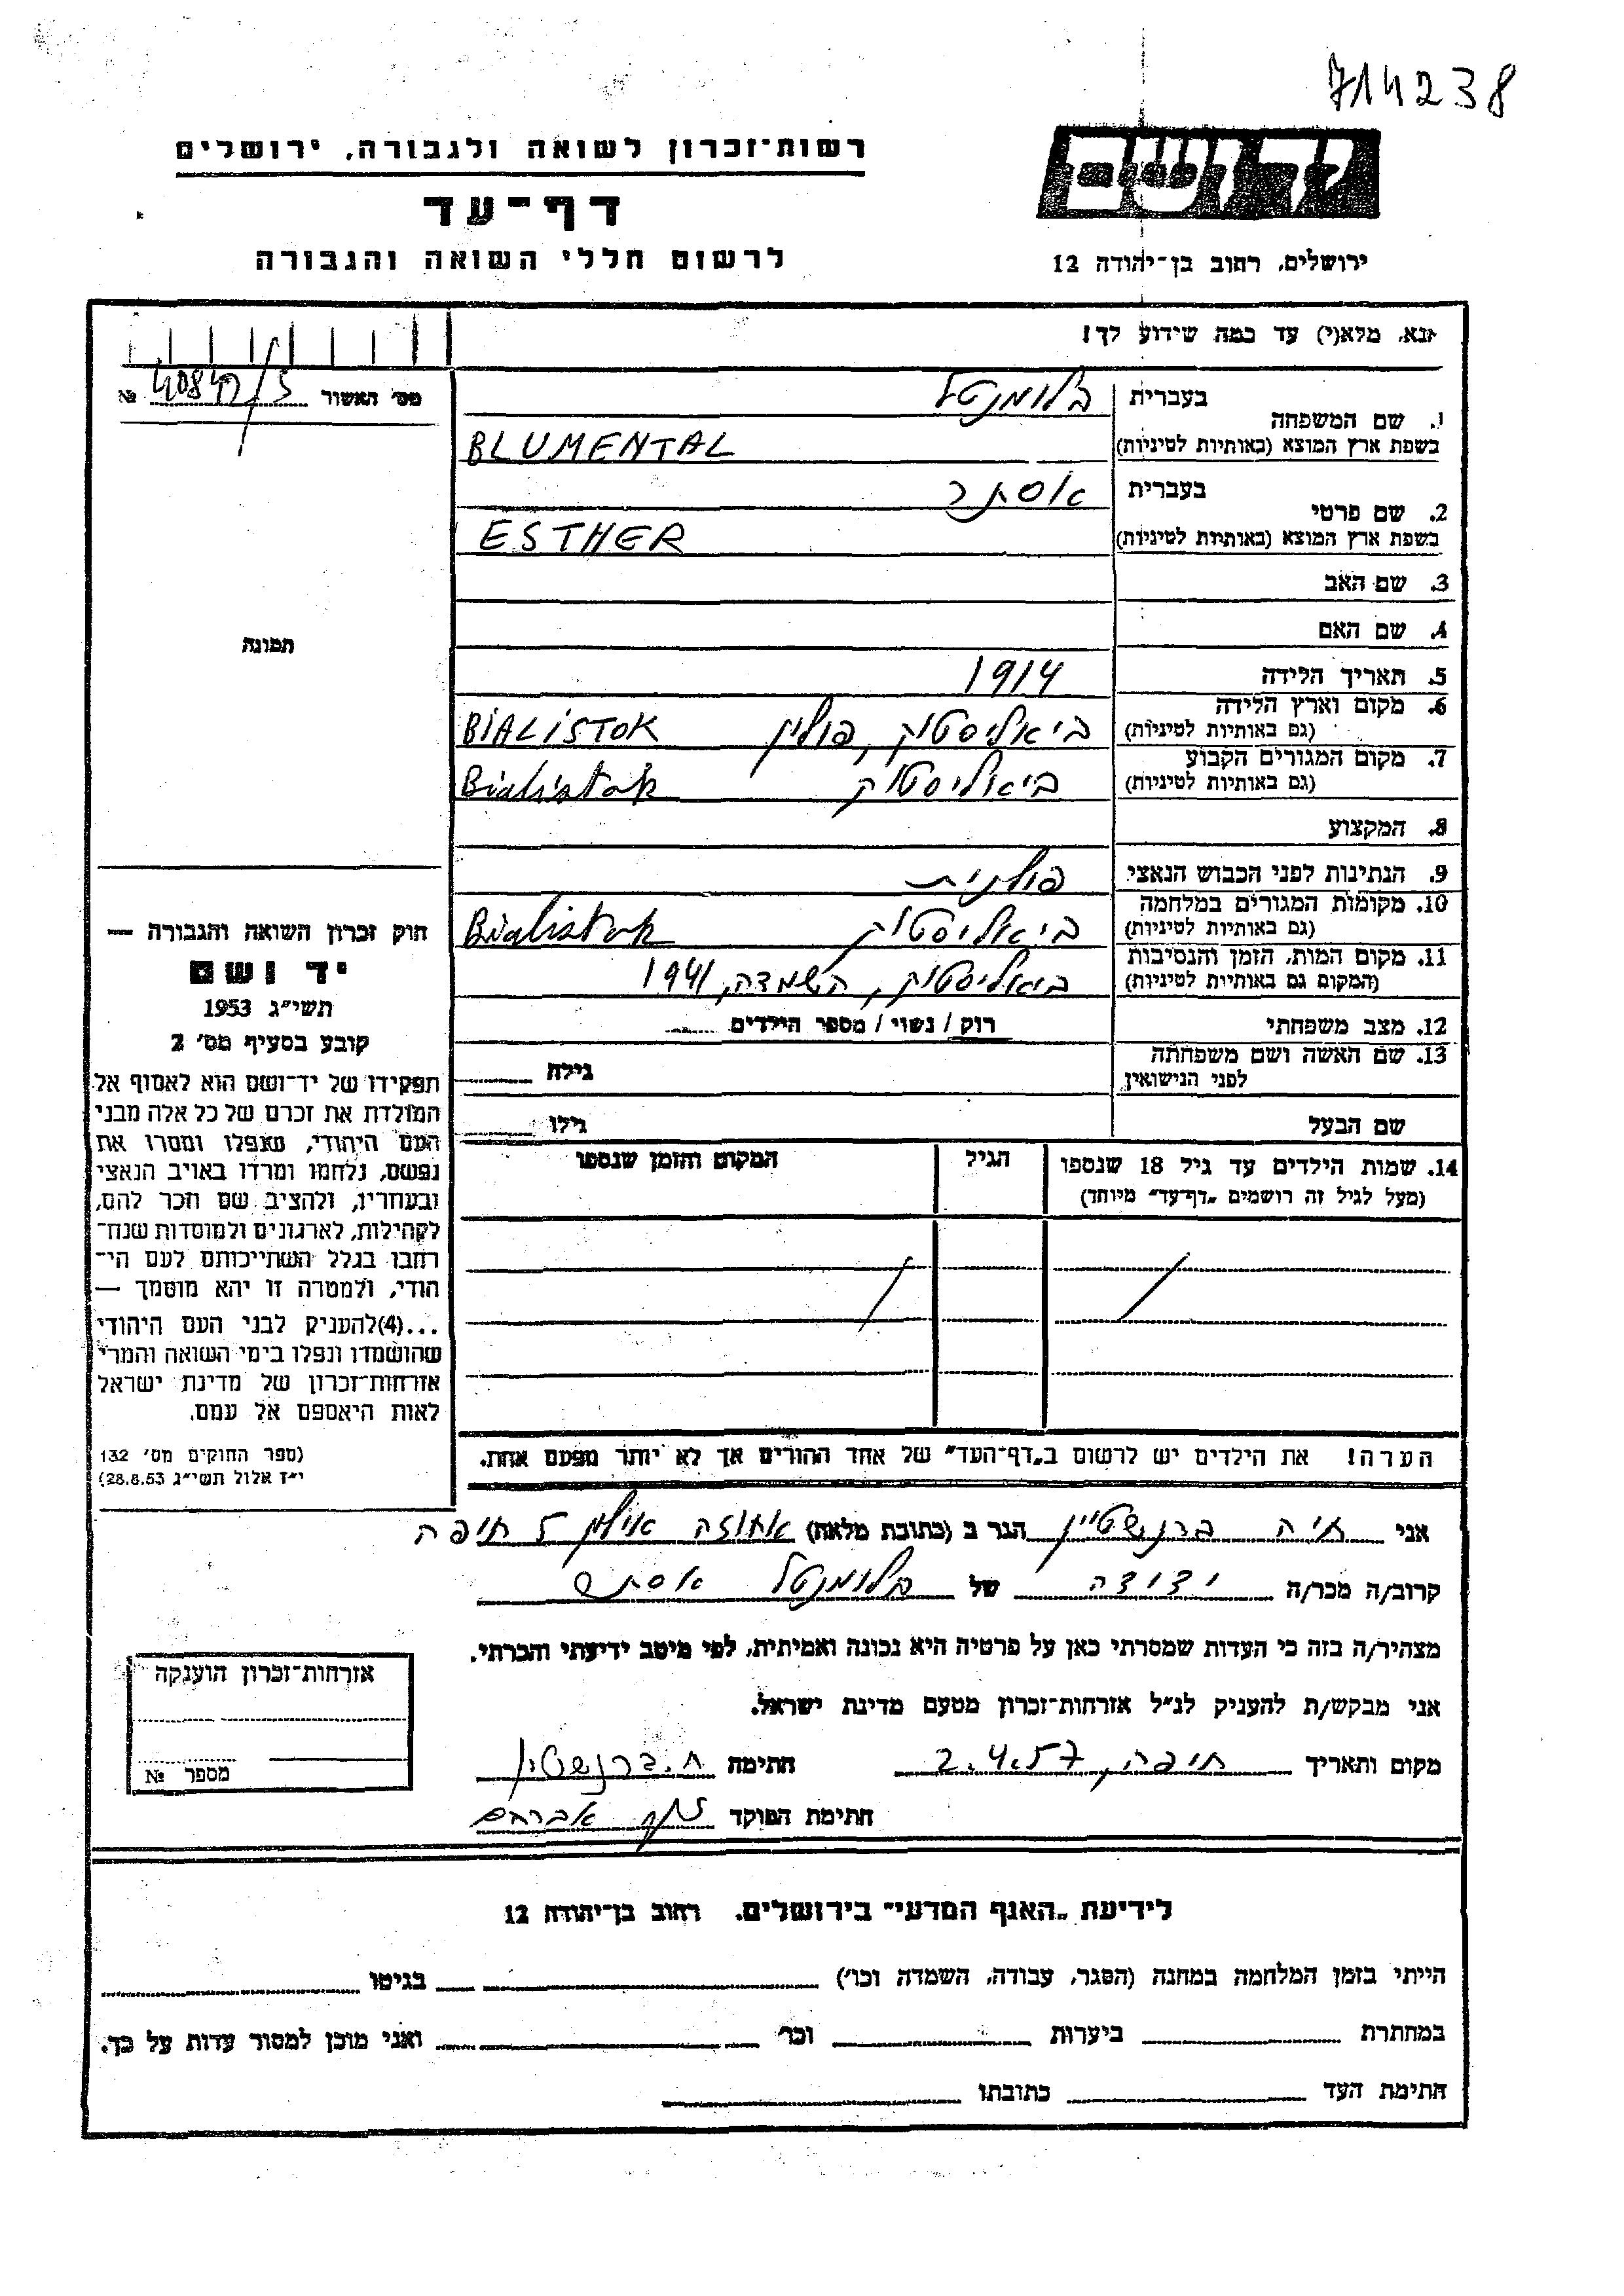 714238
רשות־זכרון לשואה ולגבורה, ירושלים
יד ושם
דף־עד
לרשום חללי השואה והגבורה
ירושלים, רחוב בן־יהודה 12
נא, מלא(י) עד כמה שידוע לך!
מס׳ האשור №
תמונה
1. שם המשפחה
בעברית בלומנטל
בשפת ארץ המוצא (באותיות לטיניות) BLUMENTAL
2. שם פרטי
בעברית אסתר
בשפת ארץ המוצא (באותיות לטיניות) ESTHER
3. שם האב
4. שם האם
5. תאריך הלידה 1914
6. מקום וארץ הלידה (גם באותיות לטיניות) ביאליסטוק, פולין BIALISTOK
7. מקום המגורים הקבוע (גם באותיות לטיניות) ביאליסטוק Bialistok
8. המקצוע
9. הנתינות לפני הכבוש הנאצי פולנית
10. מקומות המגורים במלחמה (גם באותיות לטיניות) ביאליסטוק Bialistok
11. מקום המות, הזמן והנסיבות (המקום גם באותיות לטיניות) ביאליסטוק, השמדה, 1941
12. מצב משפחתי רוק / נשוי / מספר הילדים
13. שם האשה ושם משפחתה לפני הנישואין גילה
שם הבעל גילו
14. שמות הילדים עד גיל 18 שנספו הגיל המקום והזמן שנספו
(מעל לגיל זה רושמים „דף־עד״ מיוחד)
הערה! את הילדים יש לרשום ב„דף־העד״ של אחד ההורים אך לא יותר מפעם אחת.
חוק זכרון השואה והגבורה —
יד ושם
תשי״ג 1953
קובע בסעיף מס׳ 2
תפקידו של יד־ושם הוא לאסוף אל
המולדת את זכרם של כל אלה מבני
העם היהודי, שנפלו ומסרו את
נפשם, נלחמו ומרדו באויב הנאצי
ובעוזריו, ולהציב שם וזכר להם,
לקהילות, לארגונים ולמוסדות שנח־
רבו בגלל השתייכותם לעם הי־
הודי, ולמטרה זו יהא מוסמך —
...(4)להעניק לבני העם היהודי
שהושמדו ונפלו בימי השואה והמרי
אזרחות־זכרון של מדינת ישראל
לאות היאספם אל עמם.
(ספר החוקים מס׳ 132
י״ז אלול תשי״ג 28.8.53)
אני חיה ברנשטיין הגר ב (כתובת מלאה) אחוזה אילון 5 חיפה
קרוב/ה מכר/ה ידידה של בלומנטל אסתר
מצהיר/ה בזה כי העדות שמסרתי כאן על פרטיה היא נכונה ואמיתית, לפי מיטב ידיעתי והכרתי.
אני מבקש/ת להעניק לנ״ל אזרחות־זכרון מטעם מדינת ישראל.
מקום ותאריך חיפה, 2.4.57 חתימה ח. ברנשטיין
חתימת הפוקד אברהם
אזרחות־זכרון הוענקה
מספר №
לידיעת „האגף המדעי״ בירושלים. רחוב בן־יהודה 12
הייתי בזמן המלחמה במחנה (הסגר, עבודה, השמדה וכו׳) בגיטו
במחתרת ביערות וכו׳ ואני מוכן למסור עדות על כך.
חתימת העד כתובתו